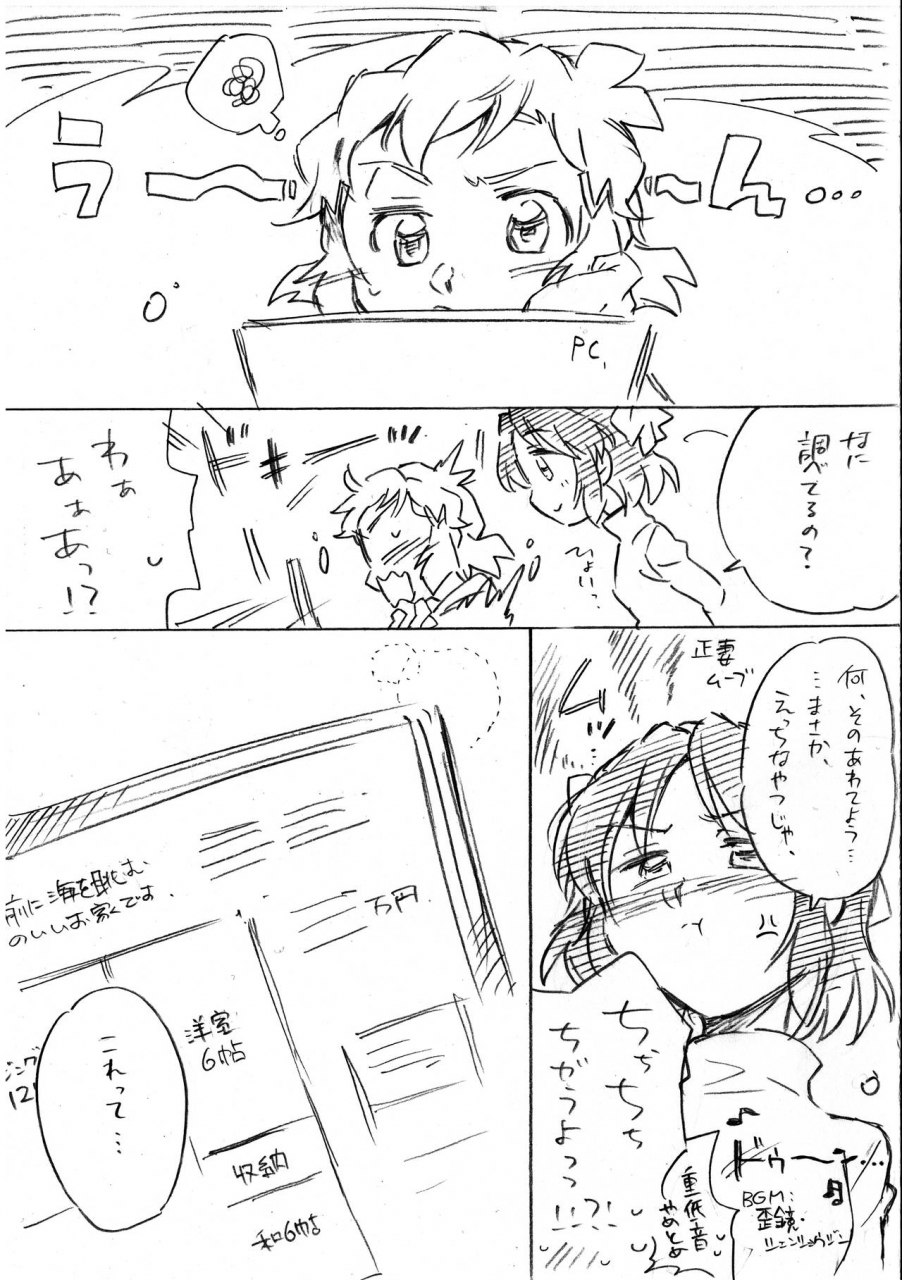 うーーーん…
PC,
なに
調べてるの?
ひょいっ
ドキーッ
わぁ
あぁ
あっ!?
何、そのあわてよう…
…まさか、
えっちなやつじゃ、
正妻
ムーブ
ムッ…
ちちちち
ちがうよっっ
!!?!
ドゥーン…
BGM:
歪鏡・
シェンショウジン
重低音
やめとめ
前に海を眺む
のいいお家です.
万円
洋室
6帖
ニング
12
収納
和6帖
これって…